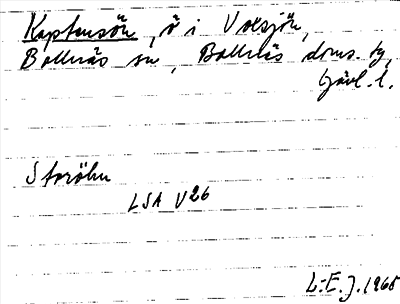 Kaptensön, ö i Volsjön,
Bollnäs sn, Bollnäs doms. tg,
Gävl. l.
Storöhn
LSA V26
L:E.J. 1968